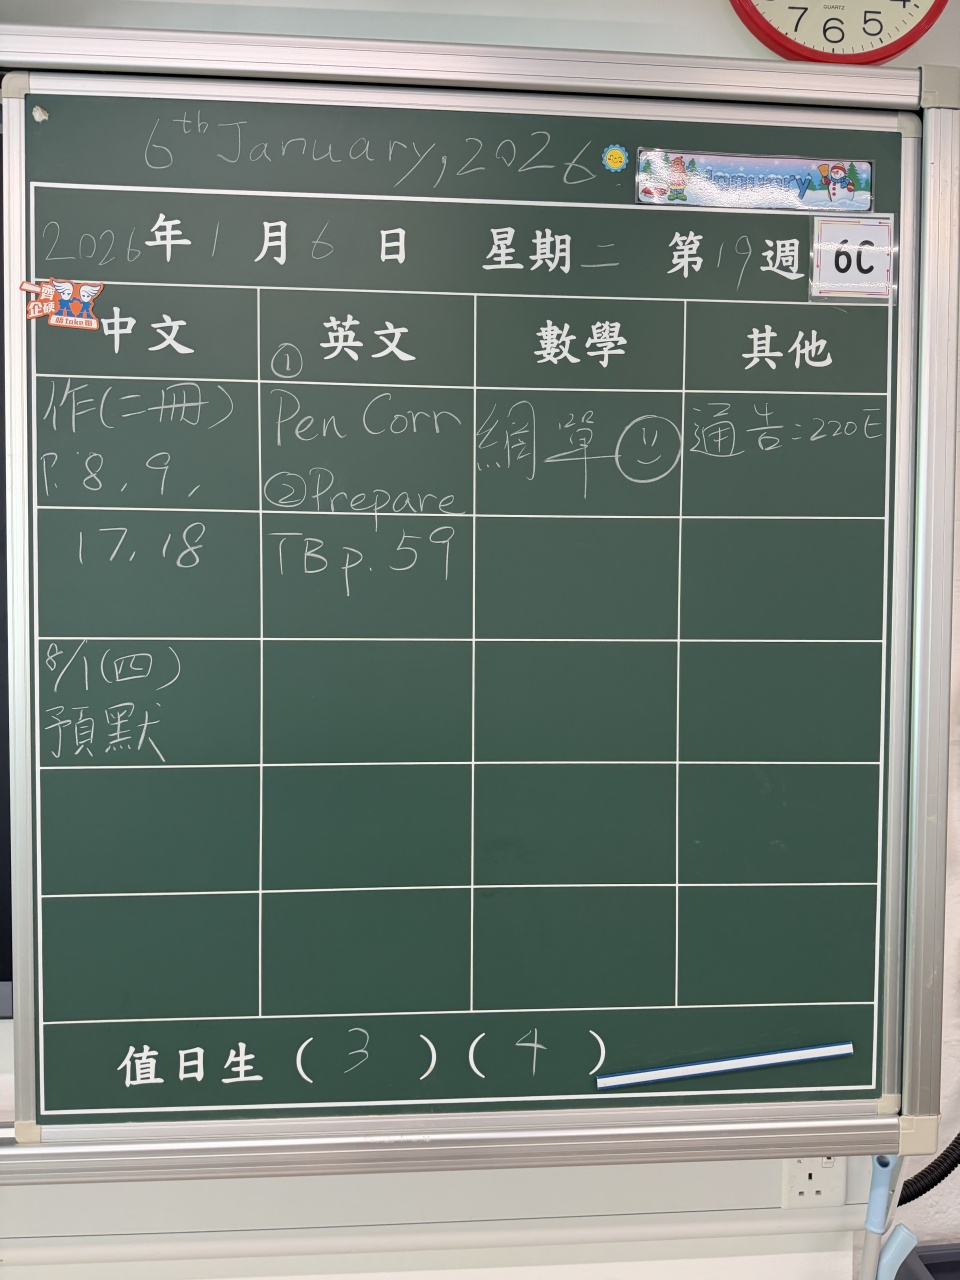 QUARTZ
7 6 5 4
6th January, 2026.
January
2026年1月6日 星期二 第19週 6C
一齊企硬
唔take嘢
中文
① 英文
數學
其他
作(二冊)
P.8, 9,
17, 18
8/1(四)
預默
Pen Corr
②Prepare
TB p.59
網單
通告:220E
值日生(3)(4)